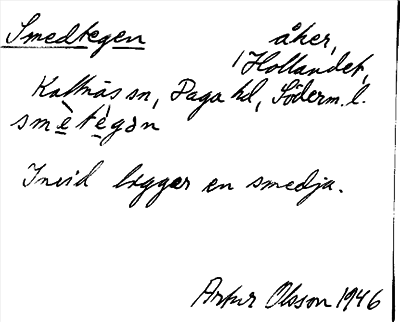 Smedtegen åker,
Hollandet,
Kattnäs sn, Daga hd, Söderm. l.
smètègən
Invid ligger en smedja.
Artur Olsson 1946